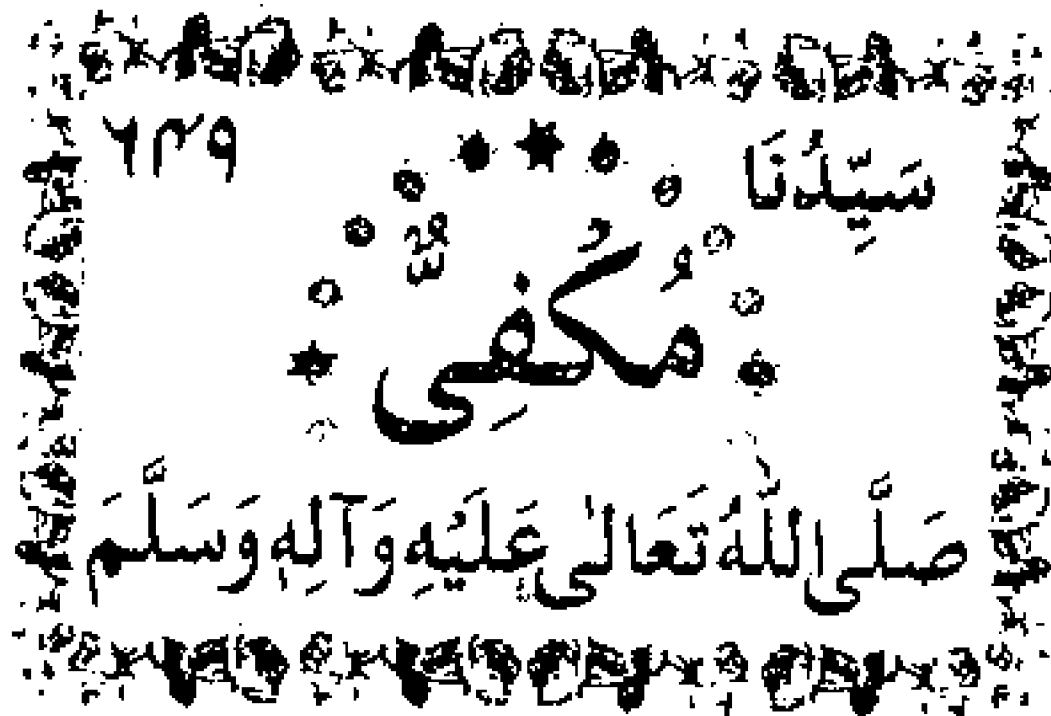 ۶۴۹
سَيِّدُنَا
مُكْفِیٌّ
صَلَّى اللّٰهُ تَعَالٰى عَلَيْهِ وَآلِهٖ وَسَلَّمَ